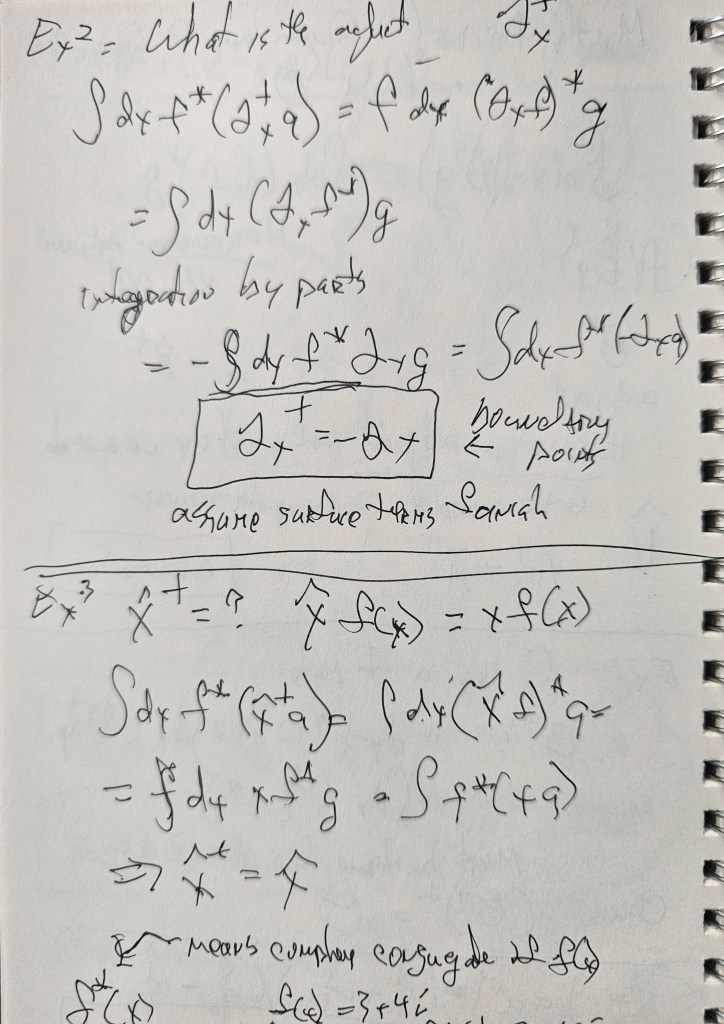 Ex 2 = What is the adjoint ∂x†
∫dx f*(∂x† g) = ∫dx (∂x f)* g
= ∫dx (∂x f*) g
integration by parts
= -∫dx f* ∂x g = ∫dx f* (-∂x g)
∂x† = -∂x ← boundary points
assume surface terms vanish
Ex 3 x̂† = ? x̂ f(x) = x f(x)
∫dx f* (x̂† g) = ∫dx (x̂ f)* g =
= ∫dx x f* g = ∫ f* (x g)
⇒ x̂† = x̂
means complex conjugate of f(x)
f*(x) f(x) = 3+4i